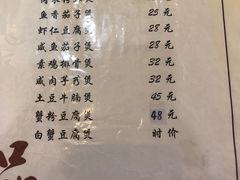 鱼香茄子煲 25元
虾仁豆腐煲 28元
咸鱼茄子煲 28元
素鸡排骨煲 32元
咸肉芋艿煲 32元
土豆牛腩煲 45元
蟹粉豆腐煲 48元
白蟹豆腐煲 时价